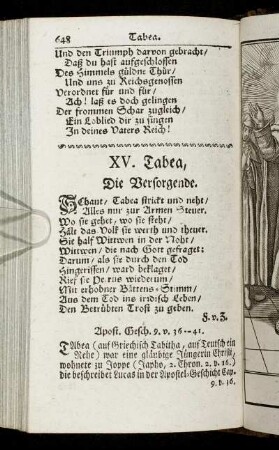 648 Tabea.
Und den Triumph darvon gebracht/
Daß du hast aufgeschlossen
Des Himmels güldne Thür/
Und uns zu Reichsgenossen
Verordnet für und für/
Ach! laß es doch gelingen
Der frommen Schar zugleich/
Ein Loblied dir zu singen
In deines Vaters Reich!
XV. Tabea,
Die Versorgende.
SChaut/ Tabea strickt und neht/
Alles nur zur Armen Steuer.
Wo sie gehet/ wo sie steht/
Hält das Volk sie werth und theuer.
Sie half Wittwen in der Noht/
Wittwen/ die nach Gott gefraget:
Darum/ als sie durch den Tod
Hingerissen/ ward beklaget/
Rief sie Petrus wiederum
Mit erhobner Bittens-Stimm/
Aus dem Tod ins irdisch Leben/
Den Betrübten Trost zu geben.
F. v. Z.
Apost. Gesch. 9. v. 36–41.
TAbea (auf Griechisch Tabitha/ auf Teutsch ein
Rehe) war eine gläubige Jüngerin Christi/
wohnete zu Joppe (Japho/ 2. Chron. 2. v. 16.)
die beschreibet Lucas in der Apostel-Geschicht Cap.
9. v. 36.